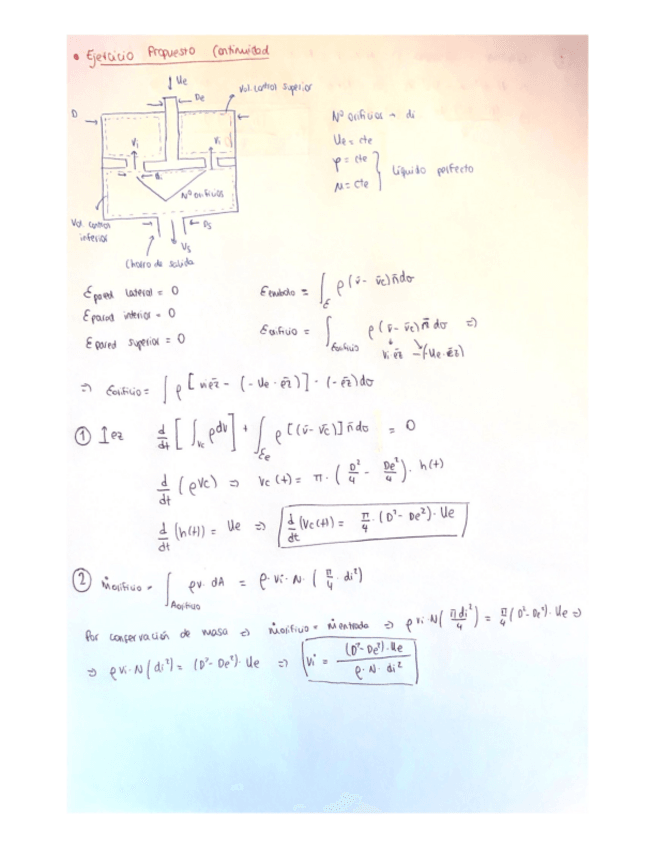 • Ejercicio Propuesto Continuidad
↓ Ue
De
Vol. control superior
D
Vi
Vi
di
Nº orificios
Vol. control
inferior
Ds
Vs
Chorro de salida
Nº orificios → di
Ue = cte
ρ = cte
μ = cte
Líquido perfecto
Ɛpared lateral = 0
Ɛpared inferior = 0
Ɛpared superior = 0
Ɛembolo = ∫Ɛ ρ(v̄ - v̄c) n̄ dσ
Ɛorificio = ∫Ɛorificio ρ(v̄ - v̄c) n̄ dσ ⇒
vi ēz -(-Ue·ēz)
⇒ Ɛorificio = ∫ ρ [vi ēz - (-Ue·ēz)]·(-ēz) dσ
① ↑ez d/dt [∫Vc ρ dV] + ∫Ɛe ρ [(v̄ - v̄c)] n̄ dσ = 0
d/dt (ρVc) ⇒ Vc(t) = π·(D²/4 - De²/4)·h(t)
d/dt (h(t)) = Ue ⇒ d/dt (Vc(t)) = π/4·(D² - De²)·Ue
② ṁorificio = ∫Aorificio ρv·dA = ρ·Vi·N·(π/4·di²)
Por conservación de masa ⇒ ṁorificio = ṁentrada ⇒ ρ Vi·N(πdi²/4) = π/4(D² - De²)·Ue ⇒
⇒ ρ Vi·N(di²) = (D² - De²)·Ue ⇒ Vi = (D² - De²)·Ue / ρ·N·di²